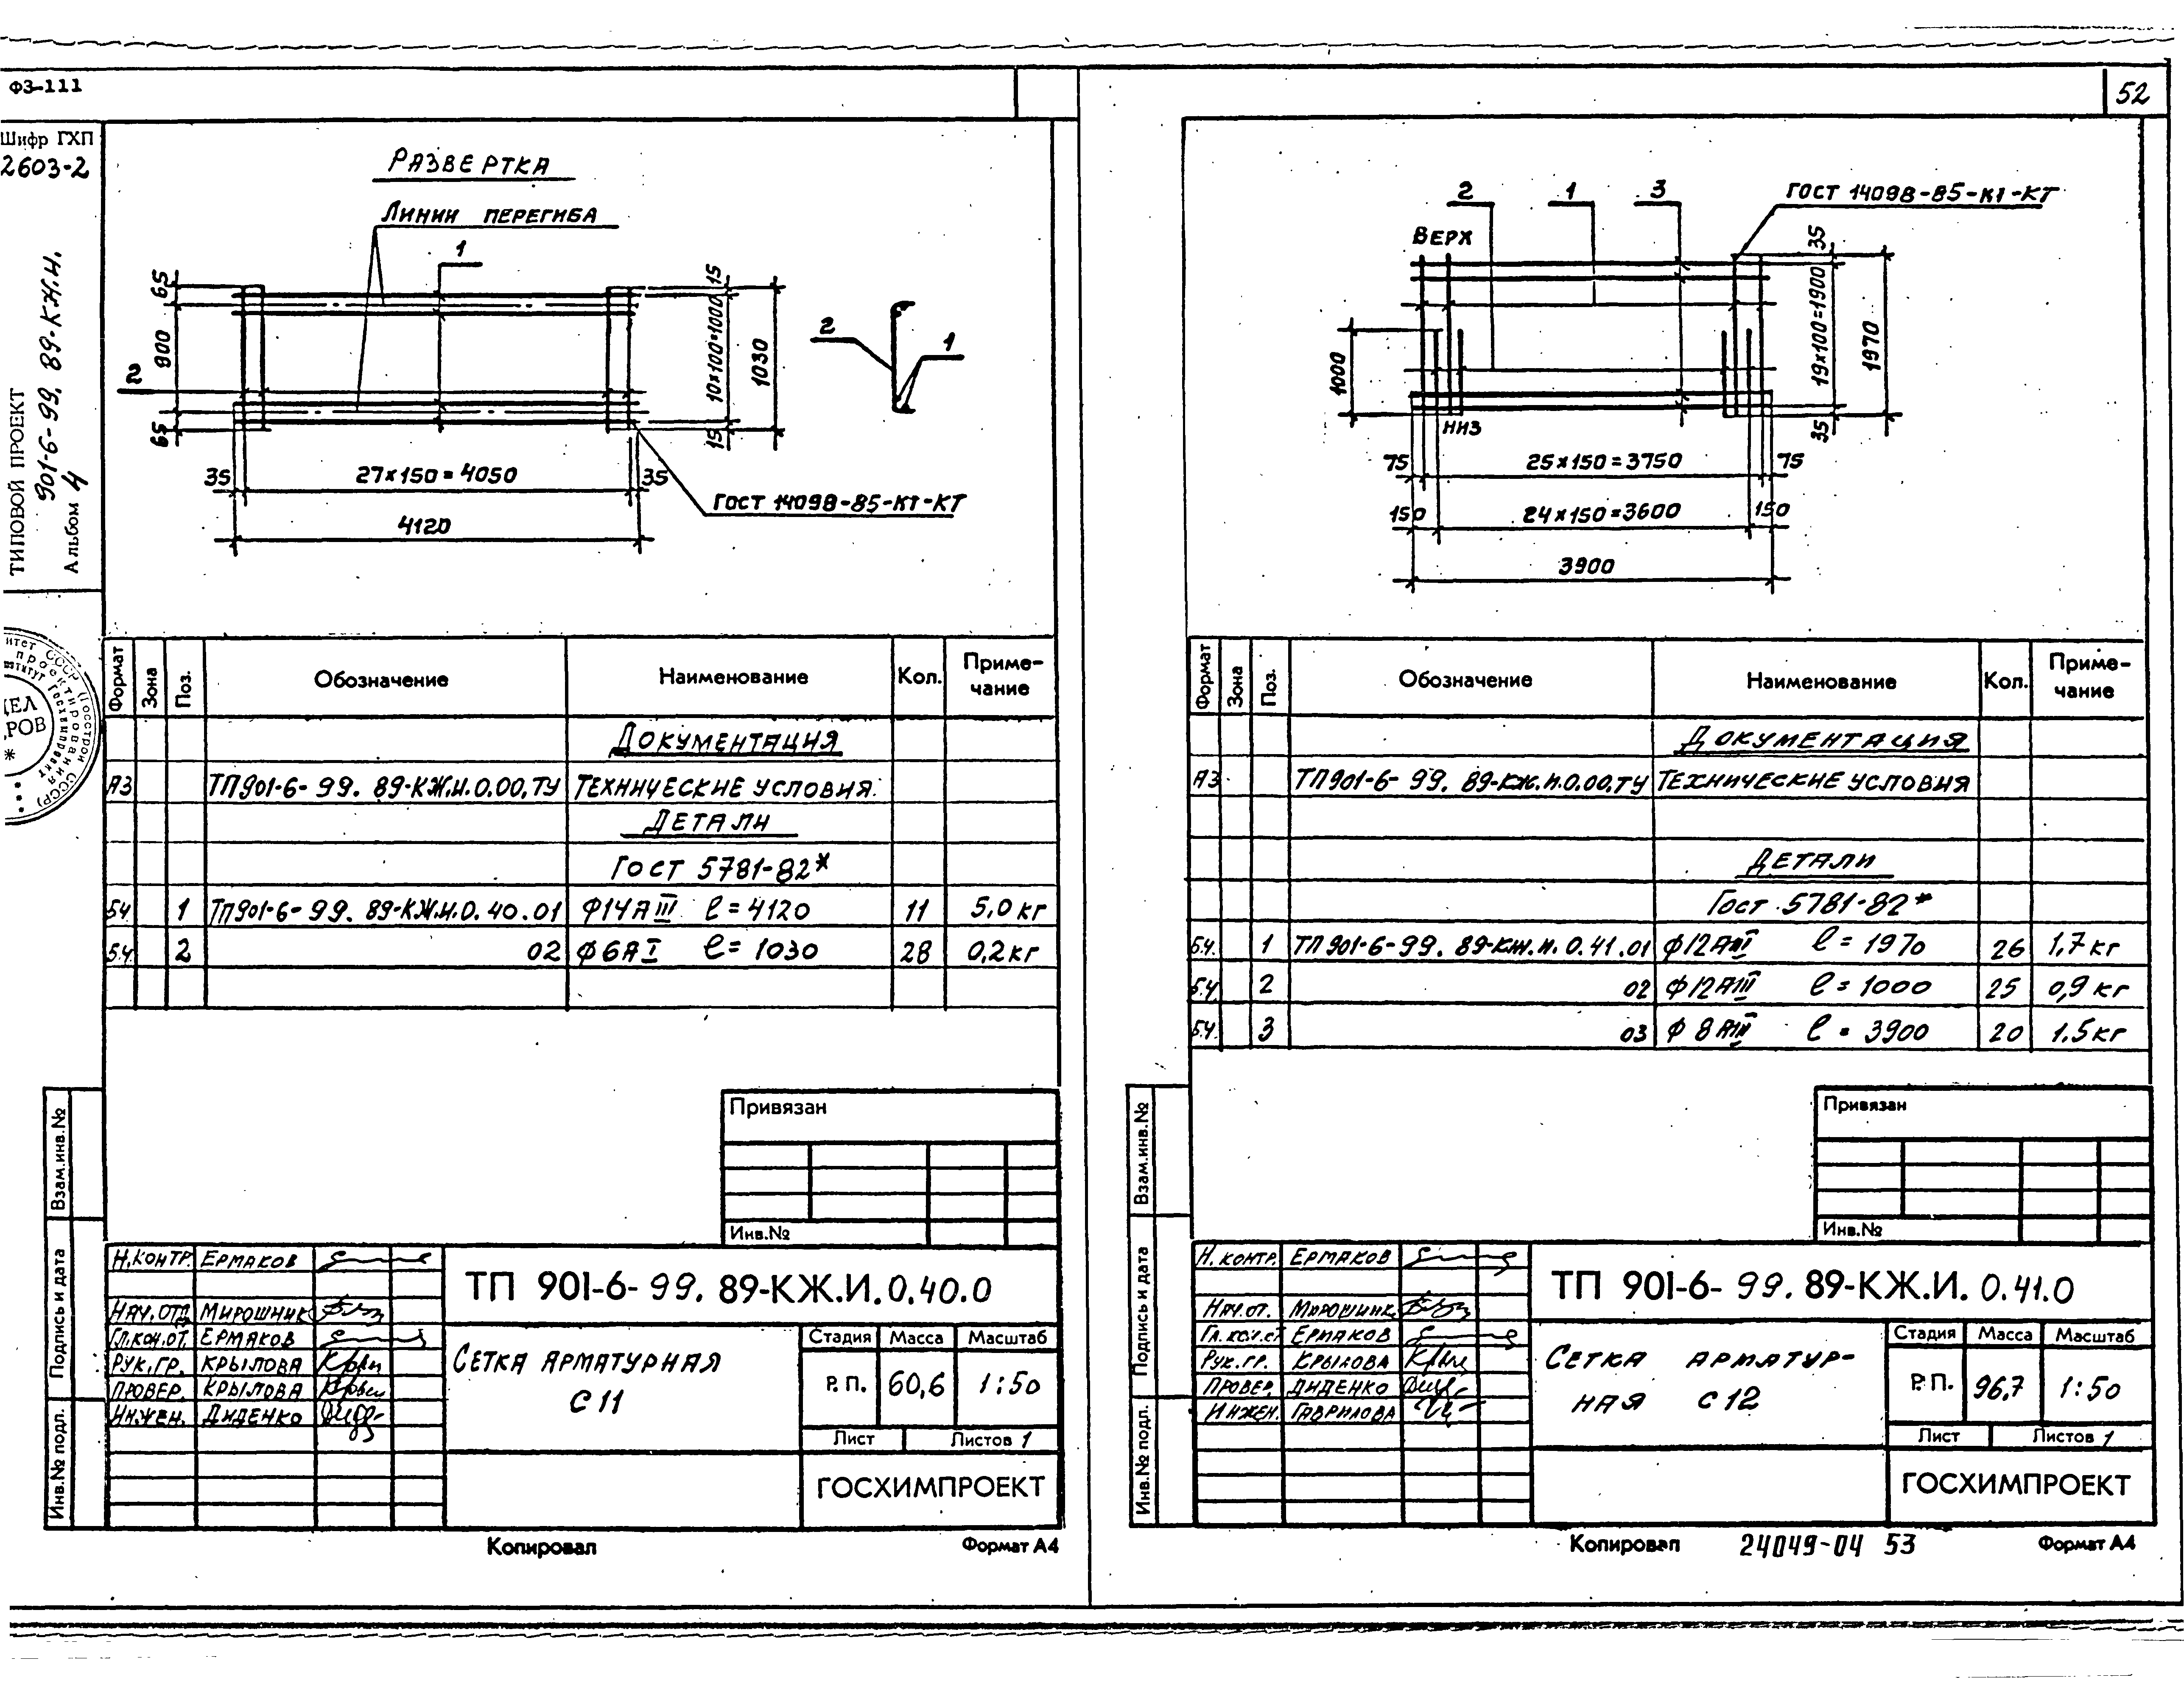 ФЗ-111
52
Шифр ГХП
2603-2
ТИПОВОЙ ПРОЕКТ
901-6-99. 89-КЖ.И.
Альбом 4
РАЗВЕРТКА
ЛИНИИ ПЕРЕГИБА
1
2
65
900
65
10х100=1000
15
15
1030
2
1
35
27х150=4050
35
4120
ГОСТ 14098-85-К1-КТ
Формат
Зона
Поз.
Обозначение
Наименование
Кол.
Приме-
чание
ДОКУМЕНТАЦИЯ
А3 ТП901-6-99. 89-КЖ.И.0.00.ТУ ТЕХНИЧЕСКИЕ УСЛОВИЯ.
ДЕТАЛИ
ГОСТ 5781-82*
Б4 1 ТП901-6-99. 89-КЖ.И.0.40.01 Ф14АIII ℓ=4120 11 5,0 кг
Б.Ч. 2 02 Ф6АI ℓ=1030 28 0,2 кг
Привязан
Инв.№
Взам.инв.№
Подпись и дата
Инв.№ подл.
Н.КОНТР. ЕРМАКОВ
НАЧ.ОТД. МИРОШНИК
ГЛ.КОН.ОТ. ЕРМАКОВ
РУК.ГР. КРЫЛОВА
ПРОВЕР. КРЫЛОВА
ИНЖЕН. ДИДЕНКО
ТП 901-6-99. 89-КЖ.И.0.40.0
СЕТКА АРМАТУРНАЯ
С 11
Стадия Масса Масштаб
Р.П. 60,6 1:50
Лист Листов 1
ГОСХИМПРОЕКТ
Копировал Формат А4
2 1 3
ГОСТ 14098-85-К1-КТ
ВЕРХ
НИЗ
1000
35
19х100=1900
35
1970
75
25х150=3750
75
150
24х150=3600
150
3900
Формат
Зона
Поз.
Обозначение
Наименование
Кол.
Приме-
чание
ДОКУМЕНТАЦИЯ
А3 ТП901-6-99. 89-КЖ.И.0.00.ТУ ТЕХНИЧЕСКИЕ УСЛОВИЯ
ДЕТАЛИ
ГОСТ 5781-82*
Б.Ч. 1 ТП901-6-99. 89-КЖ.И.0.41.01 Ф12АIII ℓ=1970 26 1,7 кг
Б.Ч. 2 02 Ф12АIII ℓ=1000 25 0,9 кг
Б.Ч. 3 03 Ф8АIII ℓ=3900 20 1.5 кг
Привязан
Инв.№
Взам.инв.№
Подпись и дата
Инв.№ подл.
Н.КОНТР. ЕРМАКОВ
НАЧ.ОТ. МИРОШНИК
ГЛ.КОН.ОТ ЕРМАКОВ
РУК.ГР. КРЫЛОВА
ПРОВЕР. ДИДЕНКО
ИНЖЕН. ГАВРИЛОВА
ТП 901-6-99. 89-КЖ.И.0.41.0
СЕТКА АРМАТУР-
НАЯ С 12
Стадия Масса Масштаб
Р.П. 96,7 1:50
Лист Листов 1
ГОСХИМПРОЕКТ
Копировал 24049-04 53 Формат А4